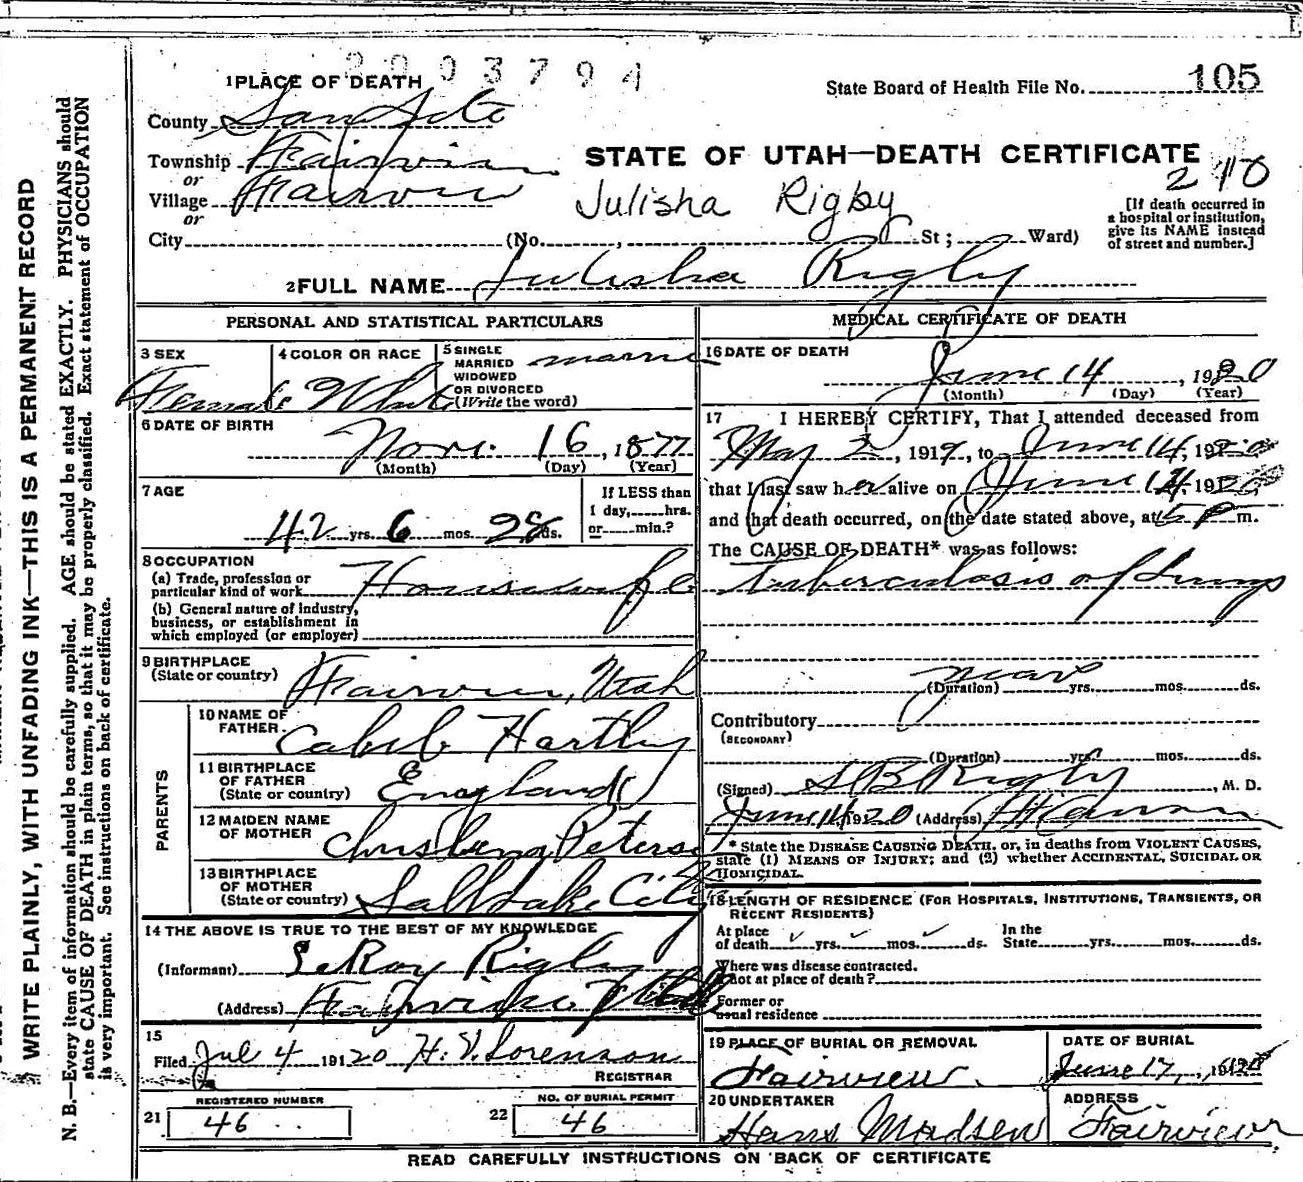 2003794
1 PLACE OF DEATH
State Board of Health File No. 105
County San Pete
STATE OF UTAH—DEATH CERTIFICATE
Township Fairview
or
210
Village Fairview
or
Julisha Rigby
[If death occurred in
a hospital or institution,
give its NAME instead
of street and number.]
City (No. , St ; Ward)
2 FULL NAME Julisha Rigby
PERSONAL AND STATISTICAL PARTICULARS
3 SEX
Female
4 COLOR OR RACE
White
5 SINGLE
MARRIED
WIDOWED
OR DIVORCED
(Write the word)
6 DATE OF BIRTH
Nov. 16, 1877
(Month) (Day) (Year)
7 AGE
42 yrs. 6 mos. 28 ds.
If LESS than
1 day, hrs.
or min.?
8 OCCUPATION
(a) Trade, profession or
particular kind of work Housewife
(b) General nature of industry,
business, or establishment in
which employed (or employer)
9 BIRTHPLACE
(State or country)
Fairview, Utah
PARENTS
10 NAME OF
FATHER Hartley
11 BIRTHPLACE
OF FATHER
(State or country) England
12 MAIDEN NAME
OF MOTHER
13 BIRTHPLACE
OF MOTHER
(State or country) Salt Lake City
14 THE ABOVE IS TRUE TO THE BEST OF MY KNOWLEDGE
(Informant) LeRoy Rigby
(Address) Fairview Utah
15
Filed Jul 4 19120 H. V. Sorenson
REGISTRAR
REGISTERED NUMBER
21 46
NO. OF BURIAL PERMIT
22 46
MEDICAL CERTIFICATE OF DEATH
16 DATE OF DEATH
June 14, 1920
(Month) (Day) (Year)
17 I HEREBY CERTIFY, That I attended deceased from
May 2, 1919, to June 14, 1920
that I last saw her alive on June 14, 1920
and that death occurred, on the date stated above, at 5 P m.
The CAUSE OF DEATH* was as follows:
Tuberculosis of Lungs
(Duration) yrs. mos. ds.
Contributory
(SECONDARY)
(Duration) yrs. mos. ds.
(Signed) Rigby, M. D.
June 14 1920 (Address)
* State the DISEASE CAUSING DEATH, or, in deaths from VIOLENT CAUSES,
state (1) MEANS OF INJURY; and (2) whether ACCIDENTAL, SUICIDAL OR
HOMICIDAL.
18 LENGTH OF RESIDENCE (FOR HOSPITALS, INSTITUTIONS, TRANSIENTS, OR
RECENT RESIDENTS)
At place
of death yrs. mos. ds. In the
State yrs. mos. ds.
Where was disease contracted.
if not at place of death?
Former or
usual residence
19 PLACE OF BURIAL OR REMOVAL
Fairview.
DATE OF BURIAL
June 17, 1920
20 UNDERTAKER
Hans Madsen
ADDRESS
Fairview
READ CAREFULLY INSTRUCTIONS ON BACK OF CERTIFICATE
WRITE PLAINLY, WITH UNFADING INK—THIS IS A PERMANENT RECORD
N. B.—Every item of information should be carefully supplied. AGE should be stated EXACTLY. PHYSICIANS should
state CAUSE OF DEATH in plain terms, so that it may be properly classified. Exact statement of OCCUPATION
is very important. See instructions on back of certificate.